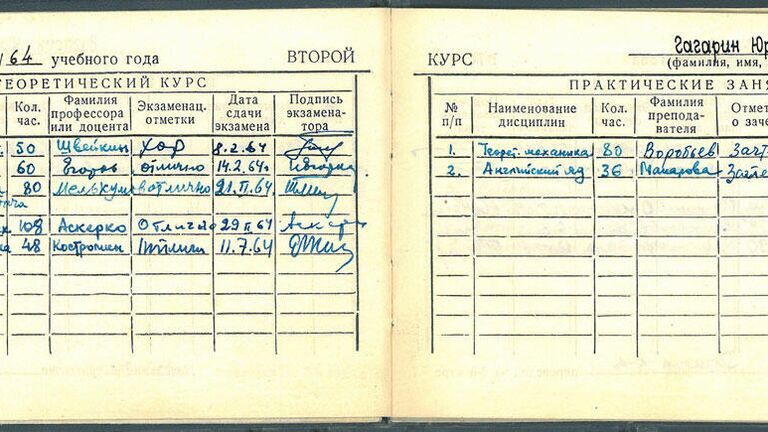 64 учебного года ВТОРОЙ
ТЕОРЕТИЧЕСКИЙ КУРС
Кол. час. Фамилия профессора или доцента Экзаменац. отметки Дата сдачи экзамена Подпись экзаменатора
50 Швейкин хор 8.2.64
60 Егоров отлично 14.2.64г.
80 отлично 21.II.64
108 Аскерко Отлично 29 II 64
48 11.7.64
КУРС Гагарин Юр
(фамилия, имя,
ПРАКТИЧЕСКИЕ ЗАНЯ
№ п/п Наименование дисциплин Кол. час. Фамилия преподавателя Отмет о заче
1. Теорет. механика 80 Воробьев Зачт
2. Английский яз 36 Макарова